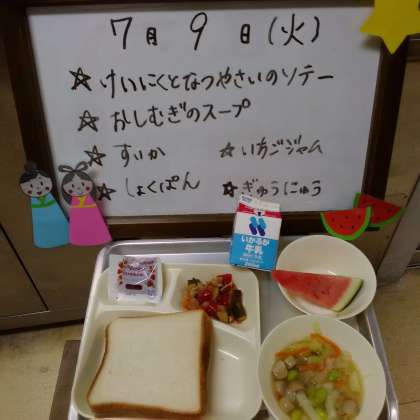 7月9日(火)
☆けいにくとなつやさいのソテー
☆おしむぎのスープ
☆すいか ☆いちごジャム
☆しょくぱん ☆ぎゅうにゅう
いかるが
牛乳